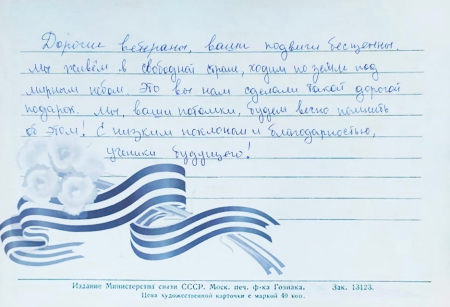 Дорогие ветераны, ваши подвиги бесценны.
Мы живём в свободной стране, ходим по земле под
мирным небом. Это вы нам сделали такой дорогой
подарок. Мы, ваши потомки, будем вечно помнить
об этом! С низким поклоном и благодарностью,
ученики будущего!
Издание Министерства связи СССР. Моск. печ. ф-ка Гознака. Зак. 13123.
Цена художественной карточки с маркой 40 коп.